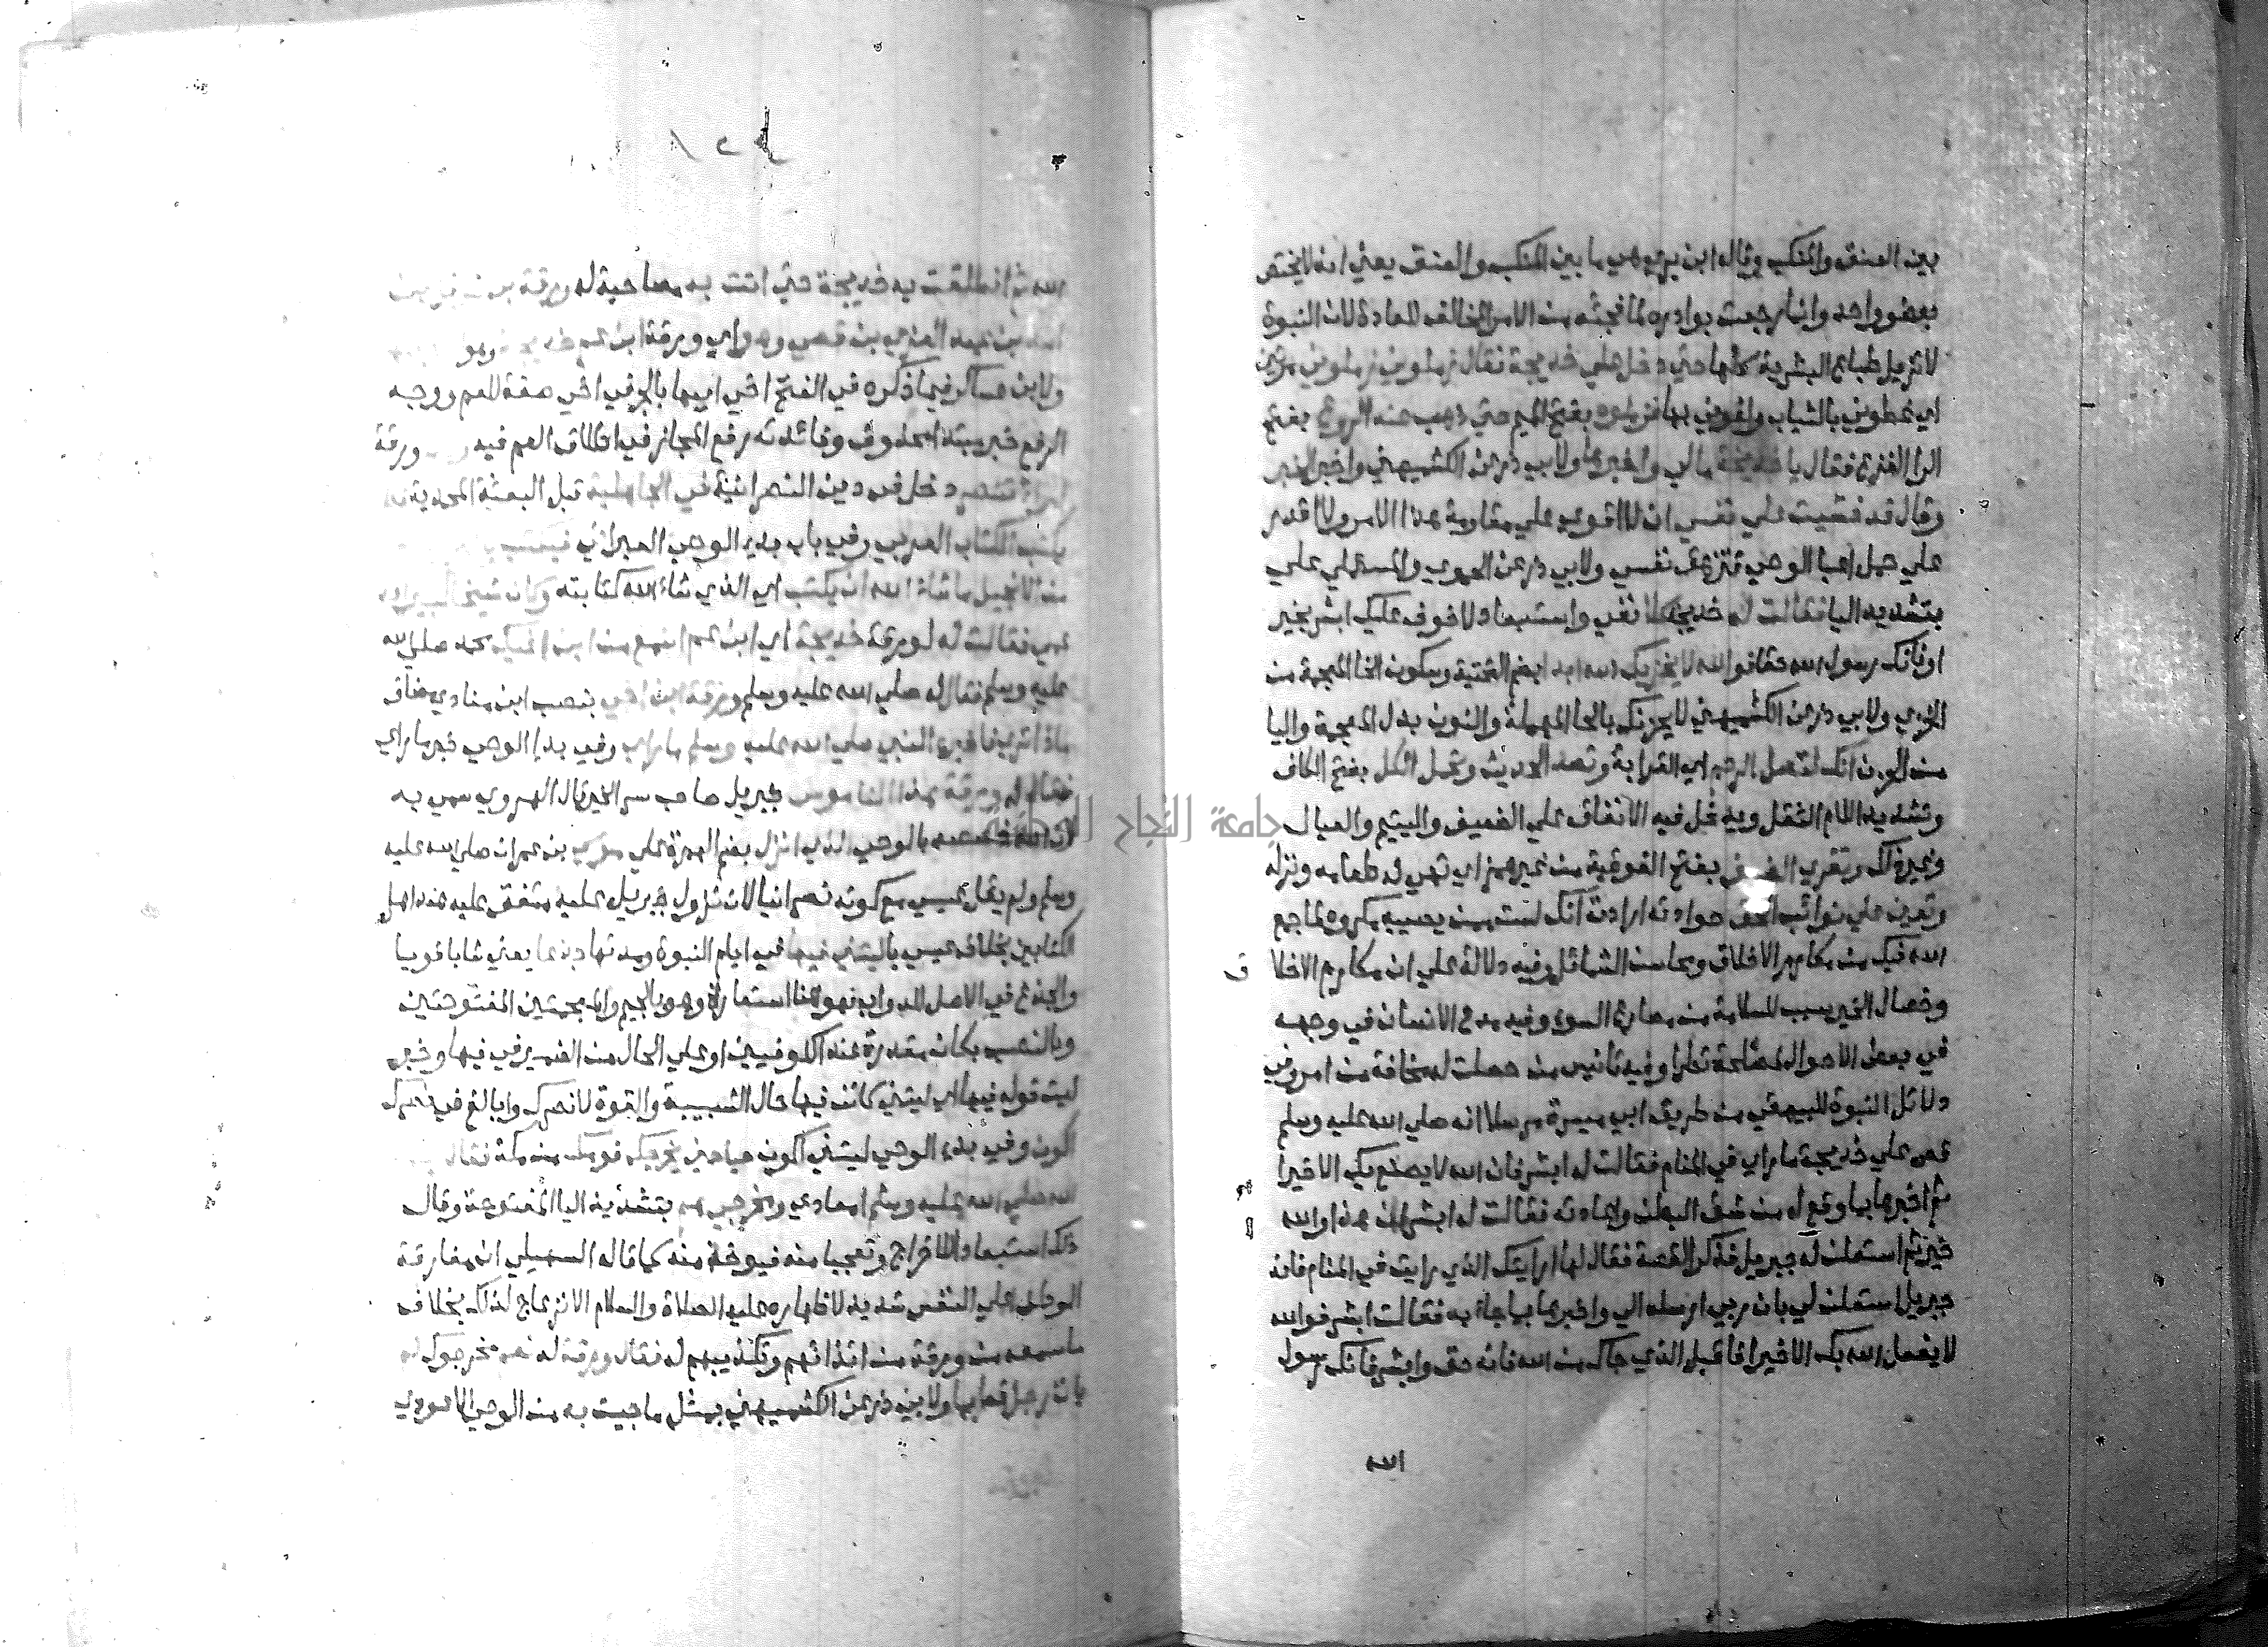 بين العنق والمنكب وقال ابن بري وهي ما بين المنكب والعنق يعني انه لا يختص
بعضو واحد وانما رجعت بوادره لما فجئه من الامر المخالف للعادة لان النبوة
لا تزيل طباع البشرية كلها حتي دخل علي خديجة فقال زملوني زملوني مرتين
اي غطوني بالثياب ولفوني بها فزملوه بفتح الميم حتي ذهب عنه الروع بفتح
الرا الفزع فقال يا خديجة مالي واخبرها ولابي ذر عن الكشميهني واخبر الخبر
وقال قد خشيت علي نفسي ان لا اقوي علي مقاومة هذا الامر ولا اقدر
علي حمل اعبا الوحي فتزهق نفسي ولابي ذر عن الحموي والمستملي علي
بتشديد اليا فقالت له خديجة كلا نفي واستبعاد لا خوف عليك ابشر بخير
او فانك رسول الله حقا فوالله لا يخزيك الله ابدا بضم التحتية وسكون الخا المعجمة من
الخزي ولابي ذر عن الكشميهني لا يحزنك بالحا المهملة والنون بدل المعجمة واليا
من الحزن انك لتصل الرحم اي القرابة وتصدق الحديث وتحمل الكل بفتح الكاف
وتشديد اللام الثقل ويدخل فيه الانفاق علي الضعيف واليتيم والعيال
وغير ذلك وتقري الضيف بفتح الفوقية من غير همز اي تهيي له طعامه ونزله
وتعين علي نوائب الحق حوادثه ارادت انك لست ممن يصيبه مكروه لما جمع
الله فيك من مكارم الاخلاق ومحاسن الشمائل وفيه دلالة علي ان مكارم الاخلا ق
وخصال الخير سبب للسلامة من مصارع السوء وفيه مدح الانسان في وجهه
في بعض الاحوال لمصلحة تطرا وفيه تانيس من حصلت له مخافة من امر وفي
دلائل النبوة للبيهقي من طريق ابي ميسرة مرسلا انه صلي الله عليه وسلم
قص علي خديجة ما راي في المنام فقالت له ابشر فان الله لا يصنع بك الا خيرا
ثم اخبرها بما وقع له من شق البطن واعادته فقالت له ابشر ان هذا والله
خير ثم استعلن له جبريل فذكر القصة فقال لها ارايتك الذي رايت في المنام فانه
جبريل استعلن لي بان ربي ارسله الي واخبرها بما جاء به فقالت ابشر فوالله
لا يفعل الله بك الا خيرا فاقبل الذي جاك من الله فانه حق وابشر فانك رسول
الله
الله ثم انطلقت به خديجة حتي اتت به مصاحبة له ورقة بن نوفل بن
اسد بن عبد العزي بن قصي وهو اي ورقة ابن عم خديجة وهو
ولابن عساكر فيما ذكره في الفتح اخي ابيها بالجر في اخي صفة للعم ووجه
الرفع خبر مبتدا محذوف وفائدته رفع المجاز في اطلاق العم فيه ورقة
امرا تنصر دخل في دين النصرانية في الجاهلية قبل البعثة المحمدية
يكتب الكتاب العربي وفي باب بدء الوحي العبراني فيكتب
من الانجيل ما شاء الله ان يكتب اي الذي شاء الله كتابته وكان شيخا كبيرا قد
عمي فقالت له لورقة خديجة اي ابن عم اسمع من ابن اخيك محمد صلي الله
عليه وسلم فقال له صلي الله عليه وسلم ورقة ابن اخي بنصب ابن منادي مضاف
ماذا تري فاخبره النبي صلي الله عليه وسلم ما راي وفي بدا الوحي خبر ما راي
فقال له ورقة هذا الناموس جبريل صاحب سر الخير قال الهروي سمي به
لان الله خصصه بالوحي الذي انزل بضم الهمزة علي موسي بن عمران صلي الله عليه
وسلم ولم يقل عيسي مع كونه نصرانيا لان نزول جبريل عليه متفق عليه عند اهل
الكتابين بخلاف عيسي يا ليتني فيها في ايام النبوة ومدتها جذعا يعني شابا قويا
والجذع في الاصل للدواب فهو هنا استعارة وهو بالجيم والمعجمتين المفتوحتين
وبالنصب بكان مقدرة عند الكوفيين او علي الحال من الضمير في فيها وخبر
ليت قوله فيها اي ليتني كائن فيها حال الشبيبة والقوة لانصرك وابالغ في نصرك
اكون وفي بدء الوحي ليتني اكون حيا حين يخرجك قومك من مكة فقال
الله صلي الله عليه وسلم امعادي ومخرجي هم بتشديد اليا المفتوحة وقال
ذلك استبعادا للاخراج وتعجبا منه فيوخذ منه كما قاله السهيلي ان مفارقة
الوطن علي النفس شديد لاظهاره عليه الصلاة والسلام الانزعاج لذلك بخلاف
ما سمعه من ورقة من ايذائهم وتكذيبهم له فقال ورقة له نعم مخرجوك لم
يات رجل قط بما ولابي ذر عن الكشميهني بمثل ما جيت به من الوحي الا عودي
جامعة النجاح الوطنية